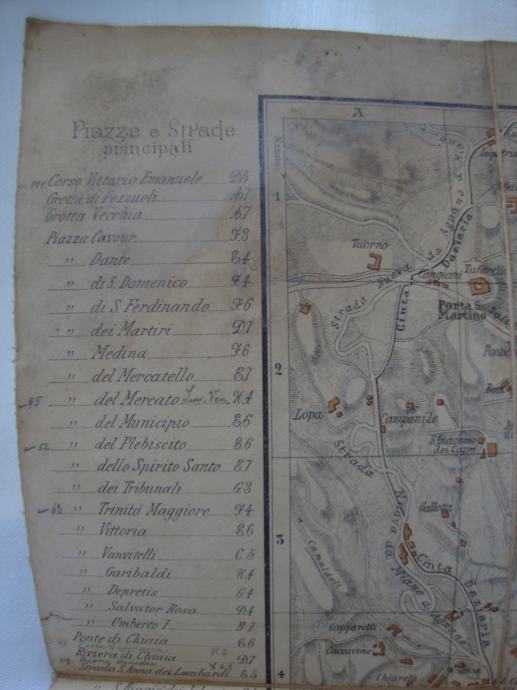 Piazze e Strade
principali
Corso Vittorio Emanuele D5
Grotta di Pozzuoli A7
Grotta Vecchia A7
Piazza Cavour F3
" Dante E4
" di S. Domenico F4
" di S. Ferdinando F6
" dei Martiri D7
" Medina F6
" del Mercatello E7
" del Mercato H4
" del Municipio E6
" del Plebiscito E6
" dello Spirito Santo E7
" dei Tribunali G3
" Trinità Maggiore F4
" Vittoria E6
" Vanvitelli C5
" Garibaldi H4
" Depretis G4
" Salvator Rosa D4
" Umberto I
Ponte di Chiaia E6
Riviera di Chiaia D7
Strada S. Anna dei Lombardi E5
A
1
2
3
4
Tuorno
Cangiani
Tufarelle
Porta S.
Martino
Strada Nuova da Agnano a
Cinta Daziaria
Lopa
Campanile
S. Giacomo
dei Capri
Strada Nuova da Miano a Agnano
Cinta Daziaria
Camaldoli
Capparelli
Caccavone
Chiarelli